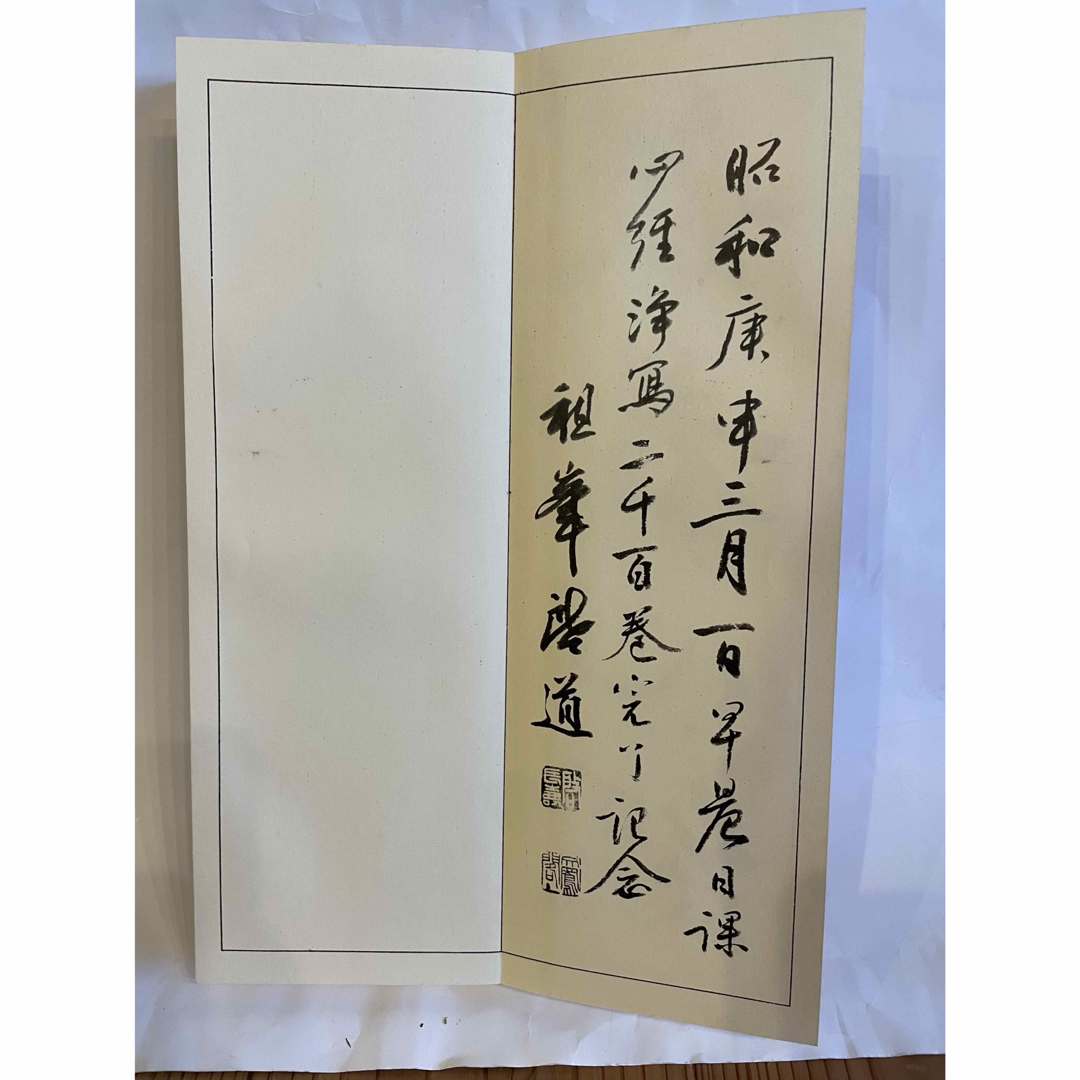 昭和庚申三月一日早晨日課
心経浄寫二千百巻完了記念
祖峯啓道